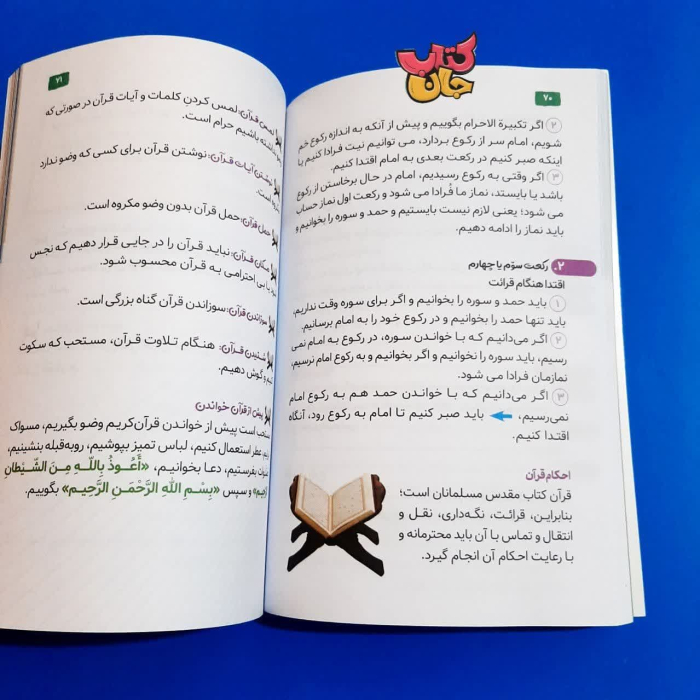 کتاب
جان
۷۰
۲ اگر تکبیرة الاحرام بگوییم و پیش از آنکه به اندازه رکوع خم
شویم، امام سر از رکوع بردارد، می توانیم نیت فرادا کنیم یا
اینکه صبر کنیم در رکعت بعدی به امام اقتدا کنیم.
۳ اگر وقتی به رکوع رسیدیم، امام در حال برخاستن از رکوع
باشد یا بایستد، نماز ما فُرادا می شود و رکعت اول نماز حساب
می شود؛ یعنی لازم نیست بایستیم و حمد و سوره را بخوانیم و
باید نماز را ادامه دهیم.
۲. رکعت سوّم یا چهارم
اقتدا هنگام قرائت
۱ باید حمد و سوره را بخوانیم و اگر برای سوره وقت نداریم،
باید تنها حمد را بخوانیم و در رکوع خود را به امام برسانیم.
۲ اگر می‌دانیم که با خواندن سوره، در رکوع به امام نمی
رسیم، باید سوره را نخوانیم و اگر بخوانیم و به رکوع امام نرسیم،
نمازمان فرادا می شود.
۳ اگر می‌دانیم که با خواندن حمد هم به رکوع امام
نمی‌رسیم، باید صبر کنیم تا امام به رکوع رود، آنگاه
اقتدا کنیم.
احکام قرآن
قرآن کتاب مقدس مسلمانان است؛
بنابراین، قرائت، نگه‌داری، نقل و
انتقال و تماس با آن باید محترمانه و
با رعایت احکام آن انجام گیرد.
۷۱
قرآن: لمس کردنِ کلمات و آیات قرآن در صورتی که
باشیم حرام است.
آیات قرآن: نوشتن قرآن برای کسی که وضو ندارد
است.
حمل قرآن: حمل قرآن بدون وضو مکروه است.
مکان قرآن: نباید قرآن را در جایی قرار دهیم که نجس
یا بی احترامی به قرآن محسوب شود.
سوزاندن قرآن: سوزاندن قرآن گناه بزرگی است.
شنیدن قرآن: هنگام تلاوت قرآن، مستحب که سکوت
و گوش دهیم.
پیش از قرآن خواندن
مستحب است پیش از خواندن قرآن کریم وضو بگیریم، مسواک
عطر استعمال کنیم، لباس تمیز بپوشیم، روبه‌قبله بنشینیم،
بفرستیم، دعا بخوانیم، «أَعُوذُ بِاللّهِ مِنَ الشَّیْطانِ
و سپس «بِسْمِ اللهِ الرَّحْمَنِ الرَّحِیمِ» بگوییم.